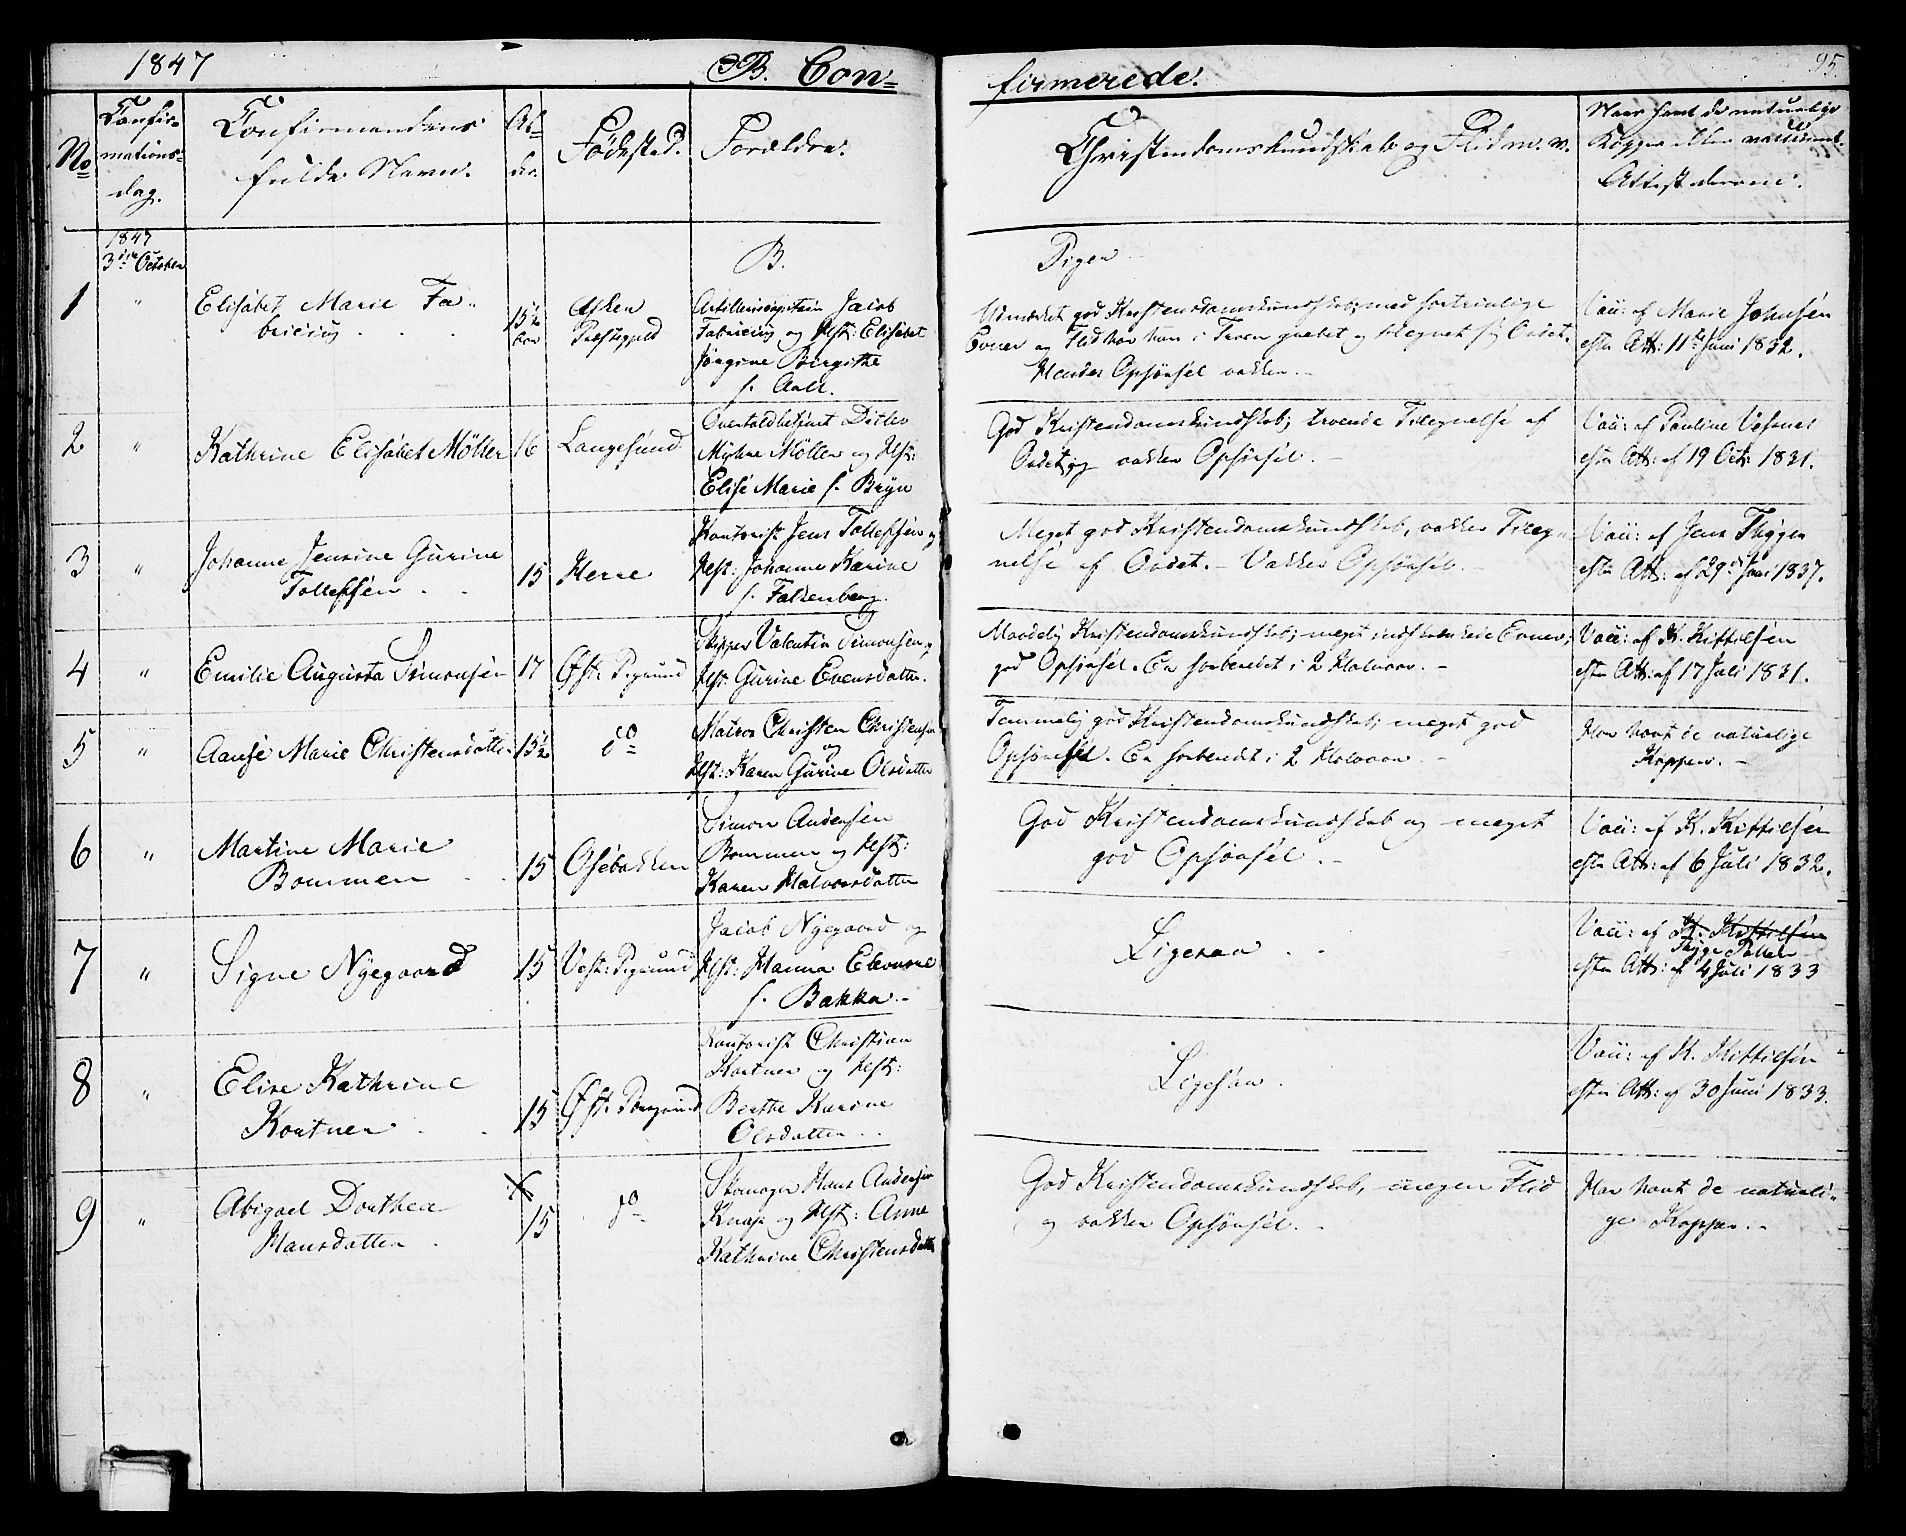 1847
B. Con-
firmerede.
95.
No
Confir-
mations-
dag.
Confirmandens
fulde Navn.
Al-
der
Fødested.
Forældre.
Christendomskundskab og Flid m. v.
Naar havt de naturlige
Kopper eller vaccineret.
Attest derom.
1847
3die October
B.
Piger
1
"
Elisabet Marie Fa-
bricius
15½
Asker
Præstegjeld
Artillericapitain Jacob
Fabricius og Hst: Elisabet
Jørgine Birgithe
f. Aall.
Udmærket god Kristendomskundskab; med fortrinlige
Evner og Flid har hun i Troen grebet og tilegnet sig Ordet.
Hendes Opførsel vakker.-
Vac: af Marie Johnsen
efter Att: 11te Juni 1832.
2
"
Kathrine Elisabet Møller
16
Langesund
Overtoldbetjent Ditlev
Møller og Hst:
Elise Marie f. Bryn
God Kristendomskundskab; troende Tilegnelse af
Ordet og vakker Opførsel.-
Vac: af Pauline
efter Att: af 19 Octr 1831.
3
"
Johanne Jensine Gurine
Tollefsen
15
Herre
Kontorist Jens Tollefsen og
Hst: Johanne Karine
f. Falkenberg.
Meget god Kristendomskundskab, vakker Tileg-
nelse af Ordet.- Vakker Opførsel.-
Vac: af Jens Thyger
efter Att: af 29de Juni 1837.
4
"
Emilie Augusta Simonsen
17
Øst: Porsgrund
Skipper Valentin Simonsen og
Hst. Gurine Evensdatter.
Maadelig Kristendomskundskab; meget indskrænkede Evner;
god Opførsel. Er forberedet i 2 Halvaar.-
Vac: af K. Kittilsen
efter Att: af 17 Juli 1831.
5
"
Aanse Marie Christensdatter
15½
do
Matros Christen Christensen
og
Hst: Karen Gurine Olsdatter
Temmelig god Kristendomskundskab; meget god
Opførsel. Er forberedt i 2 Halvaar.-
Har havt de naturlige
Kopper.-
6
"
Martine Marie
Bommen
15
Osebakken
Simon Andersen
Bommen og Hst:
Karen Halvorsdatter
God Kristendomskundskab og meget
god Opførsel.-
Vac: af K. Kittilsen
efter Att: af 6 Juli 1832.
7
"
Signe Nyegaard
15
Vest: Porsgrund
Jacob Nyegaard og
Hst: Hanna Elevine
f. Bakka.-
Ligesaa
Vac: af K. Kittilsen
Thyge
efter Att: af 4 Juli 1833
8
"
Elise Kathrine
Kortner
15
Øst: Porsgrund
Kontorist Christian
Kortner og Hst:
Berthe Karine
Olsdatter
Ligesaa.
Vac: af K. Kittilsen
efter Att: af 30 Juni 1833.
9
"
Abigael Dorthea
Hansdatter
×
15
do
Skomager Hans Andersen
Knap og Hst: Anne
Kathrine Christensdatter
God Kristendomskundskab, megen Flid
og vakker Opførsel.-
Har havt de naturli-
ge Kopper.-